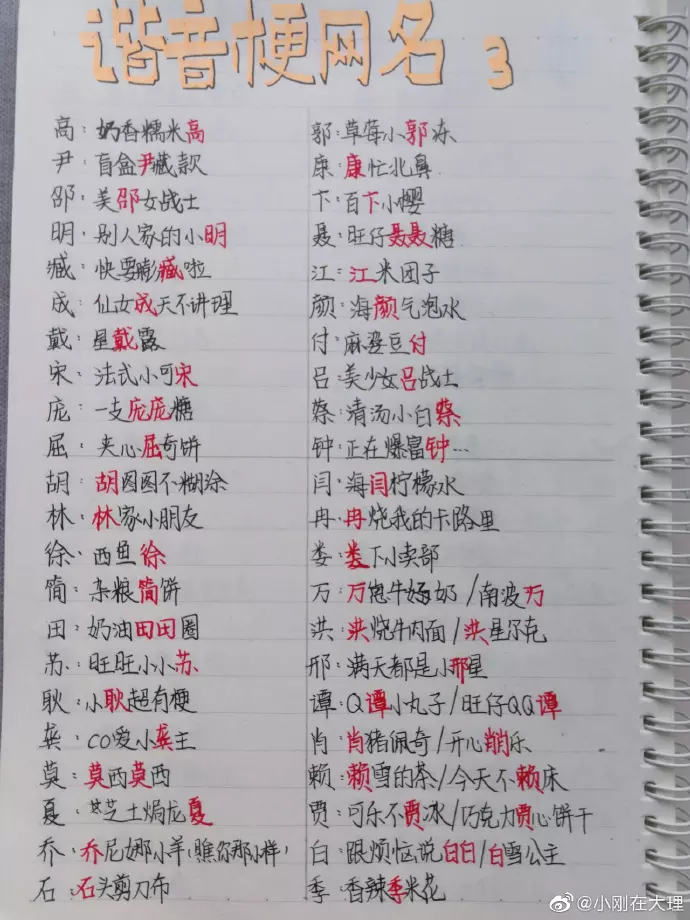 谐音梗网名 3
高：奶香糯米高
尹：盲盒尹藏款
邵：美邵女战士
明：别人家的小明
臧：快要膨臧啦
成：仙女成天不讲理
戴：星戴露
宋：法式小可宋
庞：一支庞庞糖
屈：夹心屈奇饼
胡：胡图图不糊涂
林：林家小朋友
徐：西鱼徐
简：杂粮简饼
田：奶油田田圈
苏：旺旺小小苏
耿：小耿超有梗
龚：co爱小龚主
莫：莫西莫西
夏：芝士焗龙夏
乔：乔尼娜小羊(瞧你那小样)
石：石头剪刀布
郭：草莓小郭冻
康：康忙北鼻
卞：百卞小樱
聂：旺仔聂聂糖
江：江米团子
颜：海颜气泡水
付：麻婆豆付
吕：美少女吕战士
蔡：清汤小白蔡
钟：正在爆富钟…
闫：海闫柠檬水
冉：冉烧我的卡路里
娄：娄下小卖部
万：万怹牛奶奶/南波万
洪：洪烧牛肉面/洪星尔克
邢：满天都是小邢星
谭：Q谭小丸子/旺仔QQ谭
肖：肖猪佩奇/开心削乐
赖：赖雪的茶/今天不赖床
贾：可乐不贾冰/巧克力贾心饼干
白：跟烦恼说白白/白雪公主
季：香辣季米花
@小刚在大理